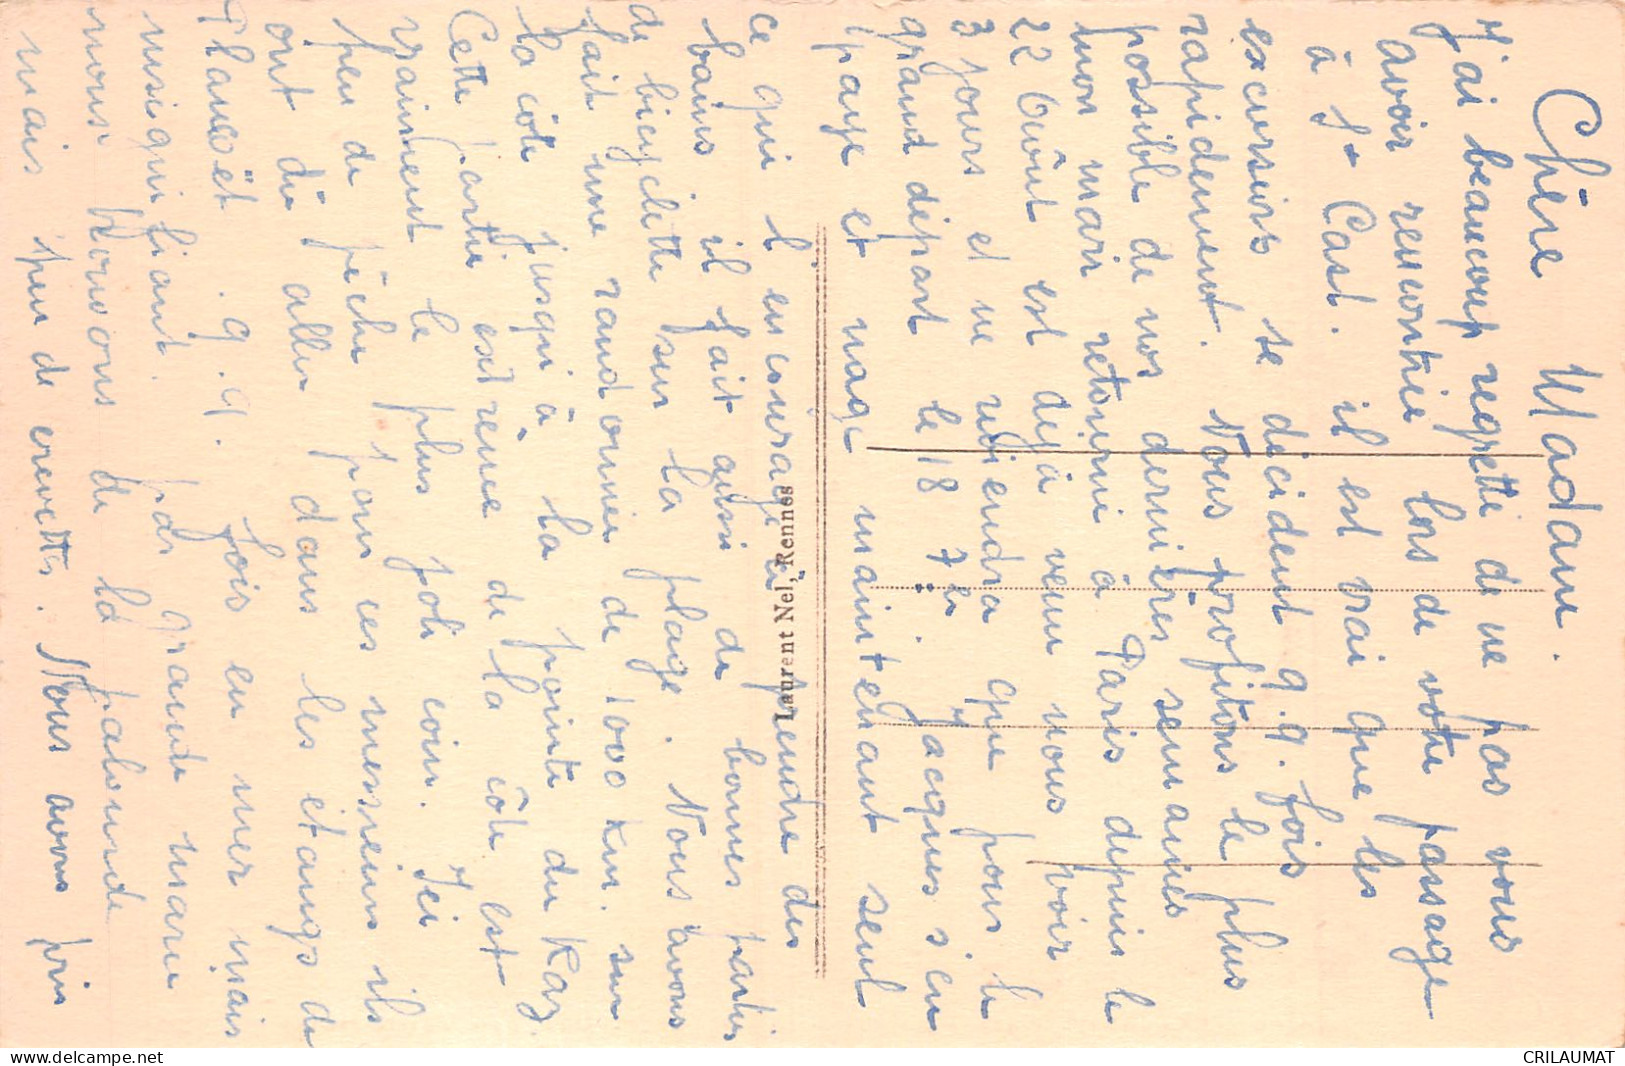 Chère Madame.
J'ai beaucoup regretté de ne pas vous
avoir rencontrée lors de votre passage
à St Cast. il est vrai que les
excursions se décident q.q. fois
rapidement. Nous profitons le plus
possible de nos dernières semaines
mon mari retourné à Paris depuis le
22 Août est déjà venu nous voir
3 jours et ne reviendra que pour le
grand départ le 18 7bre. Jacques s'en
paye et nage maintenant seul
ce qui l'encourage à prendre des
bains il fait aussi de bonnes parties
de bicyclette sur la plage. Nous avons
fait une randonnée de 1000 km. sur
la côte jusqu'à la pointe du Raz.
Cette partie extrême de la côte est
vraiment le plus joli coin. Ici
peu de pêche pour ces messieurs ils
ont dû aller dans les étangs de
Plancoët. q.q. fois en mer mais
insignifiant. pas grande marée
nous trouvons de la palourde
mais peu de crevettes. Nous avons pris
Laurent Nel, Rennes
CRILAUMAT
www.delcampe.net